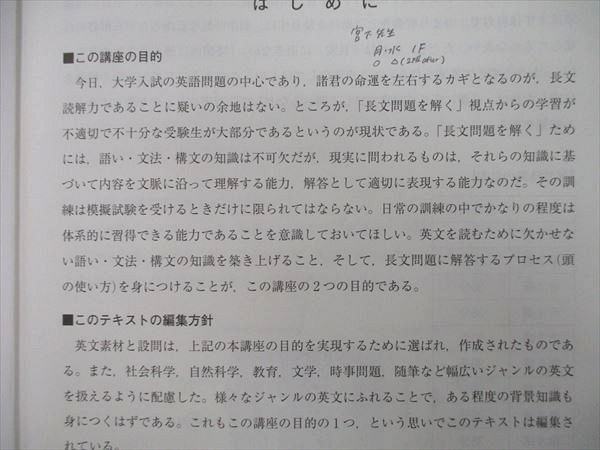 はじめに
宮下先生
月・水 1F
○ △(2nd after)
■この講座の目的
今日，大学入試の英語問題の中心であり，諸君の命運を左右するカギとなるのが，長文
読解力であることに疑いの余地はない。ところが，「長文問題を解く」視点からの学習が
不適切で不十分な受験生が大部分であるというのが現状である。「長文問題を解く」ため
には，語い・文法・構文の知識は不可欠だが，現実に問われるものは，それらの知識に基
づいて内容を文脈に沿って理解する能力，解答として適切に表現する能力なのだ。その訓
練は模擬試験を受けるときだけに限られてはならない。日常の訓練の中でかなりの程度は
体系的に習得できる能力であることを意識しておいてほしい。英文を読むために欠かせな
い語い・文法・構文の知識を築き上げること，そして，長文問題に解答するプロセス(頭
の使い方)を身につけることが，この講座の２つの目的である。
■このテキストの編集方針
英文素材と設問は，上記の本講座の目的を実現するために選ばれ，作成されたものであ
る。また，社会科学，自然科学，教育，文学，時事問題，随筆など幅広いジャンルの英文
を扱えるように配慮した。様々なジャンルの英文にふれることで，ある程度の背景知識も
身につくはずである。これもこの講座の目的の１つ，という思いでこのテキストは編集さ
れている。